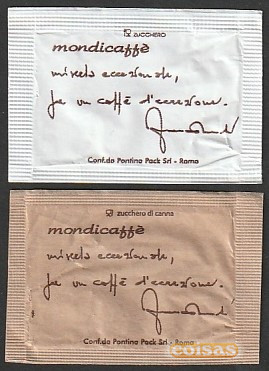 zucchero
mondicaffè
miscela eccezionale,
fa un caffè d'eccezione.
Conf.da Pontina Pack Srl - Roma
zucchero di canna
mondicaffè
miscela eccezionale,
fa un caffè d'eccezione.
Conf.da Pontina Pack Srl - Roma
coisas